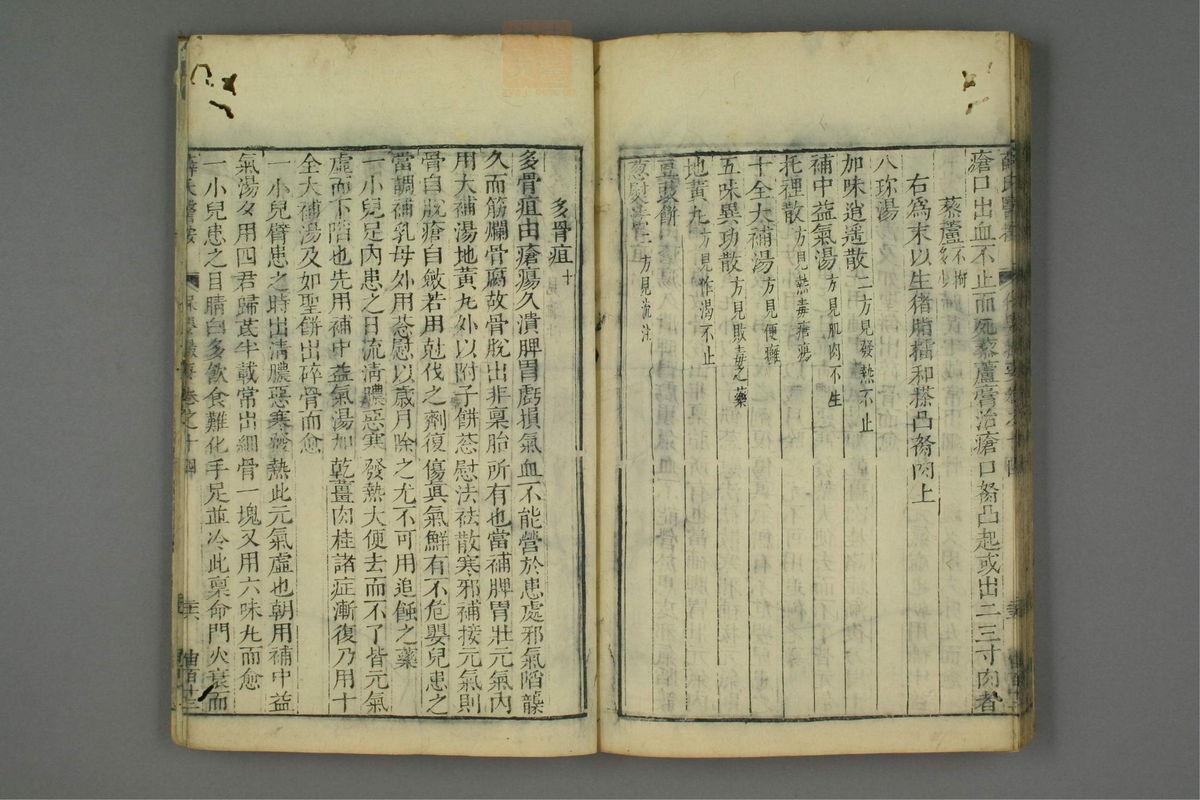 瘡口出血不止而死藜蘆膏治瘡口努凸起或出二三寸肉者
藜蘆不拘多少
右爲末以生猪脂擂和搽凸努肉上
八珍湯
加味逍遥散二方見發熱不止
補中益氣湯方見肌肉不生
托裡散方見熱毒瘡瘍
十全大補湯方見便癰
五味異功散方見敗毒之藥
地黃丸方見作渴不止
豆豉餅
葱熨法二方見流注
多骨疽十
多骨疽由瘡瘍久潰脾胃虧損氣血不能營於患處邪氣陷襲
久而筋爛骨腐故骨脫出非稟胎所有也當補脾胃壯元氣内
用大補湯地黃丸外以附子餅葱慰法祛散寒邪補接元氣則
骨自脫瘡自斂若用尅伐之劑復傷眞氣鮮有不危嬰兒患之
當調補乳母外用葱慰以歲月除之尤不可用追蝕之藥
一小兒足内患之日流清膿惡寒發熱大便去而不了皆元氣
虛而下陷也先用補中益氣湯加乾薑肉桂諸症漸復乃用十
全大補湯及如聖餅出碎骨而愈
一小兒臂患之時出清膿惡寒發熱此元氣虛也朝用補中益
氣湯夕用四君歸芪半載常出細骨一塊又用六味丸而愈
一小兒患之目睛白多飲食難化手足並冷此稟命門火衰而
薛氏醫按 保嬰撮要卷之十四